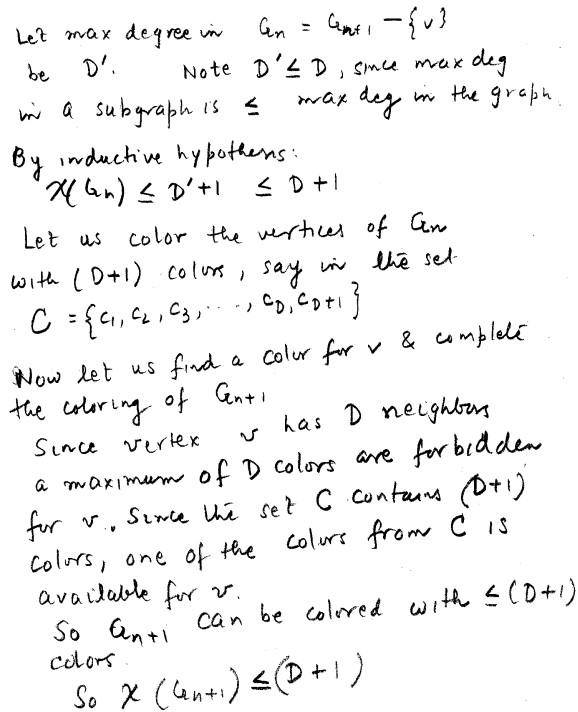 Let max degree in Gn = Gn+1 - {v}
be D'. Note D' ≤ D, since max deg
in a subgraph is ≤ max deg in the graph.
By inductive hypothesis:
χ(Gn) ≤ D'+1 ≤ D+1
Let us color the vertices of Gn
with (D+1) colors, say in the set
C = {c1, c2, c3, ..., cD, cD+1}
Now let us find a color for v & complete
the coloring of Gn+1
Since vertex v has D neighbors
a maximum of D colors are forbidden
for v. Since the set C contains (D+1)
colors, one of the colors from C is
available for v.
So Gn+1 can be colored with ≤ (D+1)
colors.
So χ(Gn+1) ≤ (D+1)